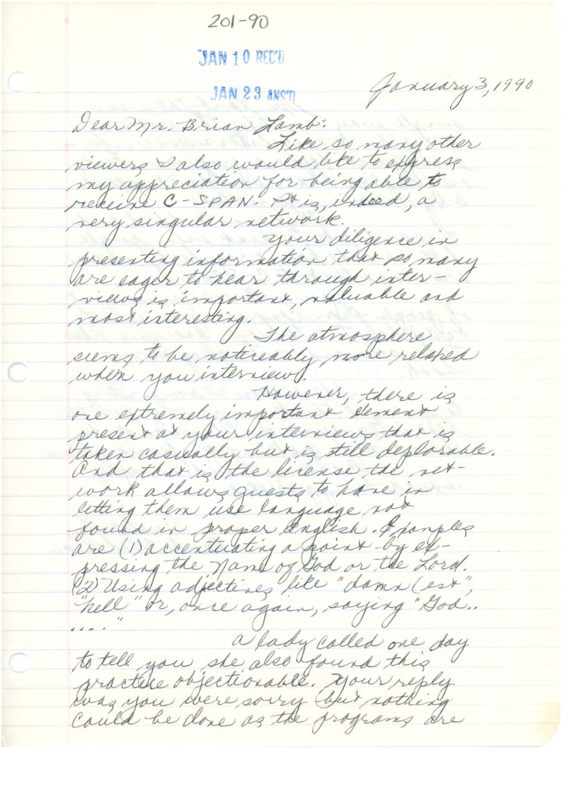 201-90
JAN 10 REC'D
JAN 23 ANS'D
January 3, 1990
Dear Mr. Brian Lamb:
Like so many other
viewers I also would like to express
my appreciation for being able to
receive C-SPAN. It is, indeed, a
very singular network.
Your diligence in
presenting information that so many
are eager to hear through inter-
views is important, valuable and
most interesting.
The atmosphere
seems to be noticeably more relaxed
when you interview.
However, there is
one extremely important element
present at your interviews that is
taken casually but is still deplorable.
And that is the license the net-
work allows guests to have in
letting them use language not
found in proper English. Examples
are (1) accentuating a point by ex-
pressing the Name of God or the Lord.
(2) Using adjectives like "damn (est",
"hell" or, once again, saying "God..
...."
A lady called one day
to tell you she also found this
practice objectionable. Your reply
was you were sorry (but nothing
could be done as the programs are